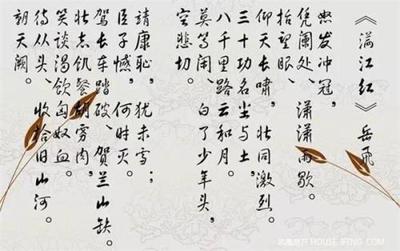 《满江红》岳飞
怒发冲冠，
凭阑处、潇潇雨歇。
抬望眼、
仰天长啸，壮同激烈。
三十功名尘与土，
八千里路云和月。
莫等闲、白了少年头，
空悲切。
请康耻，犹未雪；
臣子憾，何时灭
驾长车踏破、贺兰山缺。
壮志饥餐胡虏肉，
笑谈渴饮匈奴血。
待从头、收拾旧山河。
朝天阙。
凤凰房产 HOUSE.IFENG.COM